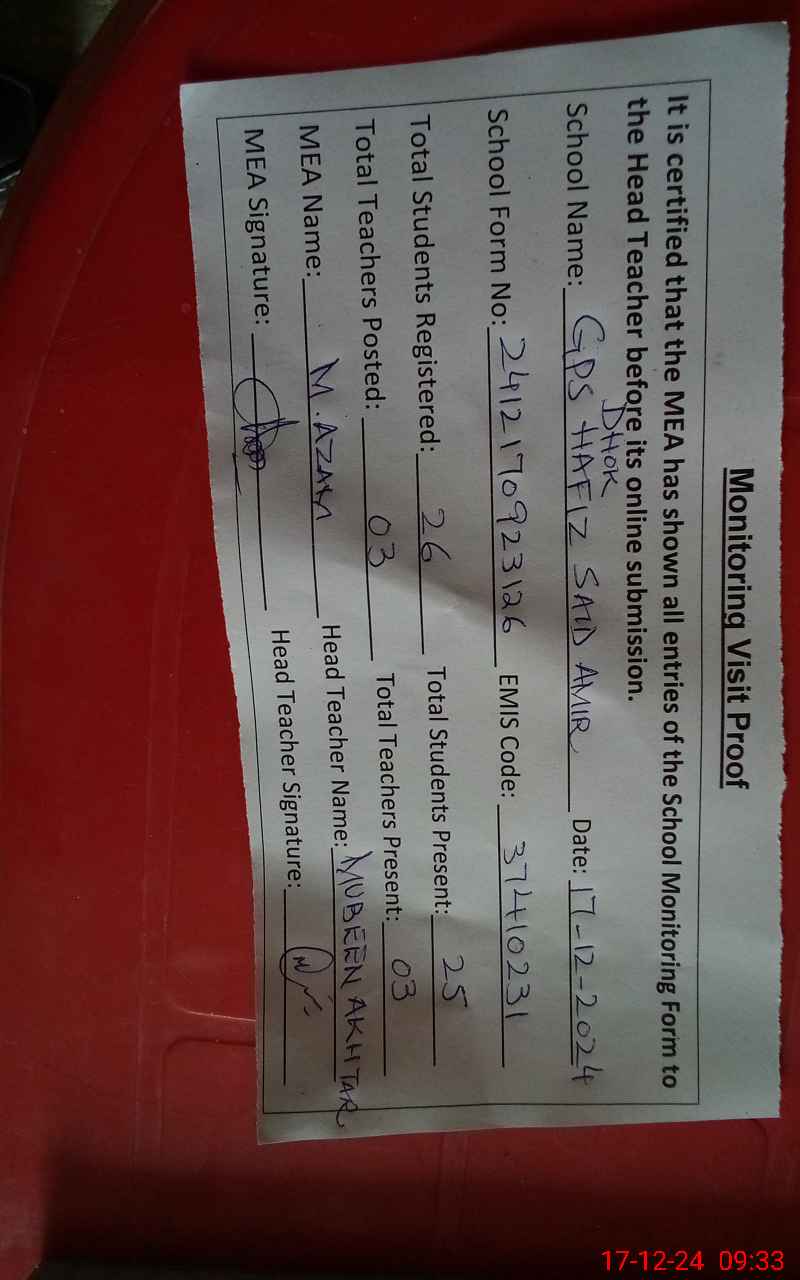 Monitoring Visit Proof
It is certified that the MEA has shown all entries of the School Monitoring Form to
the Head Teacher before its online submission.
DHOK
School Name: GPS HAFIZ SAID AMIR Date: 17-12-2024
School Form No: 2412170923126 EMIS Code: 37410231
Total Students Registered: 26 Total Students Present: 25
Total Teachers Posted: 03 Total Teachers Present: 03
MEA Name: M. AZAM Head Teacher Name: MUBEEN AKHTAR
MEA Signature: Head Teacher Signature:
17-12-24 09:33